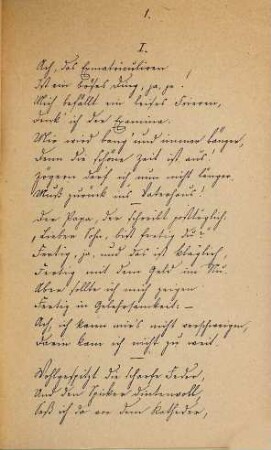 1.
I.
Ach, das Exmatriculiren
Ist ein böses Ding, ja, ja!
Mich befällt ein leises Frieren,
Denk' ich der Examina.
Mir wird bang' und immer bänger,
Denn die schöne Zeit ist aus,
Zögern darf ich nun nicht länger,
Muß zurück ins Vaterhaus!
Der Papa, der schreibt posttäglich:
„Lieber Sohn, bist fertig du?"
Fertig, ja, und das ist kläglich,
Fertig mit dem Geld im Nu.
Aber sollte ich mich zeigen
Fertig in Gelehrsamkeit: —
Ach, ich kann mir's nicht verschweigen,
Darin kam ich nicht zu weit.
Wohlgespitzt die scharfe Feder,
Und den Spicker dintenvoll,
Saß ich da vor dem Katheder,